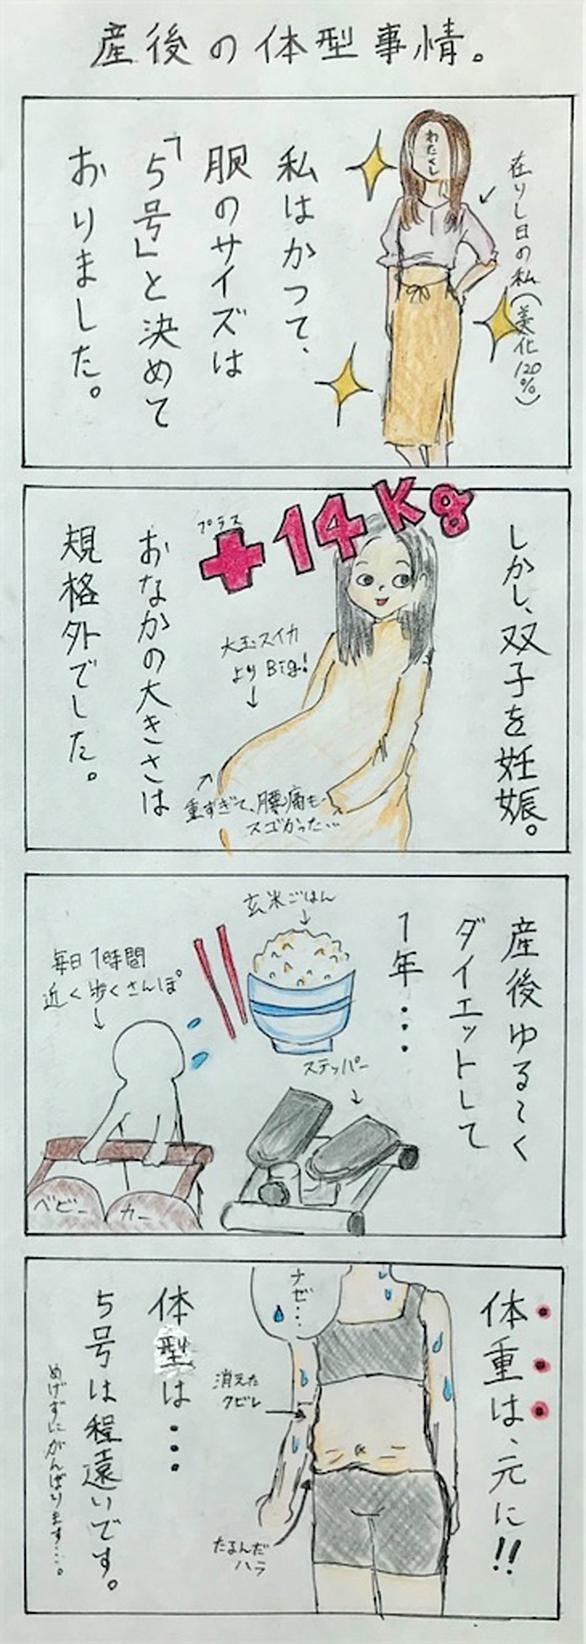 産後の体型事情。
在りし日の私(美化120%)
わたくし
私はかつて、
服のサイズは
「5号」と決めて
おりました。
しかし、双子を妊娠。
プラス
+14Kg
大玉スイカ
よりBig!
重すぎて、腰痛も
スゴかった…
おなかの大きさは
規格外でした。
産後ゆる〜く
ダイエットして
1年・・・
玄米ごはん
ステッパー
毎日1時間
近く歩くさんぽ
ベビー
カー
体重は、元に!!
ナゼ…
消えた
クビレ
たるんだ
ハラ
体型は・・・
5号は程遠いです。
めげずにがんばります…。